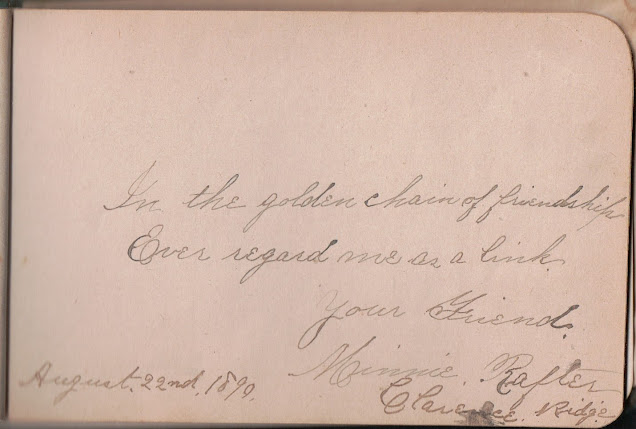 In the golden chain of friendship
Ever regard me as a link.
Your Friend.
Minnie. Rafter
August. 22nd, 1890.
Clarence. Ridge.